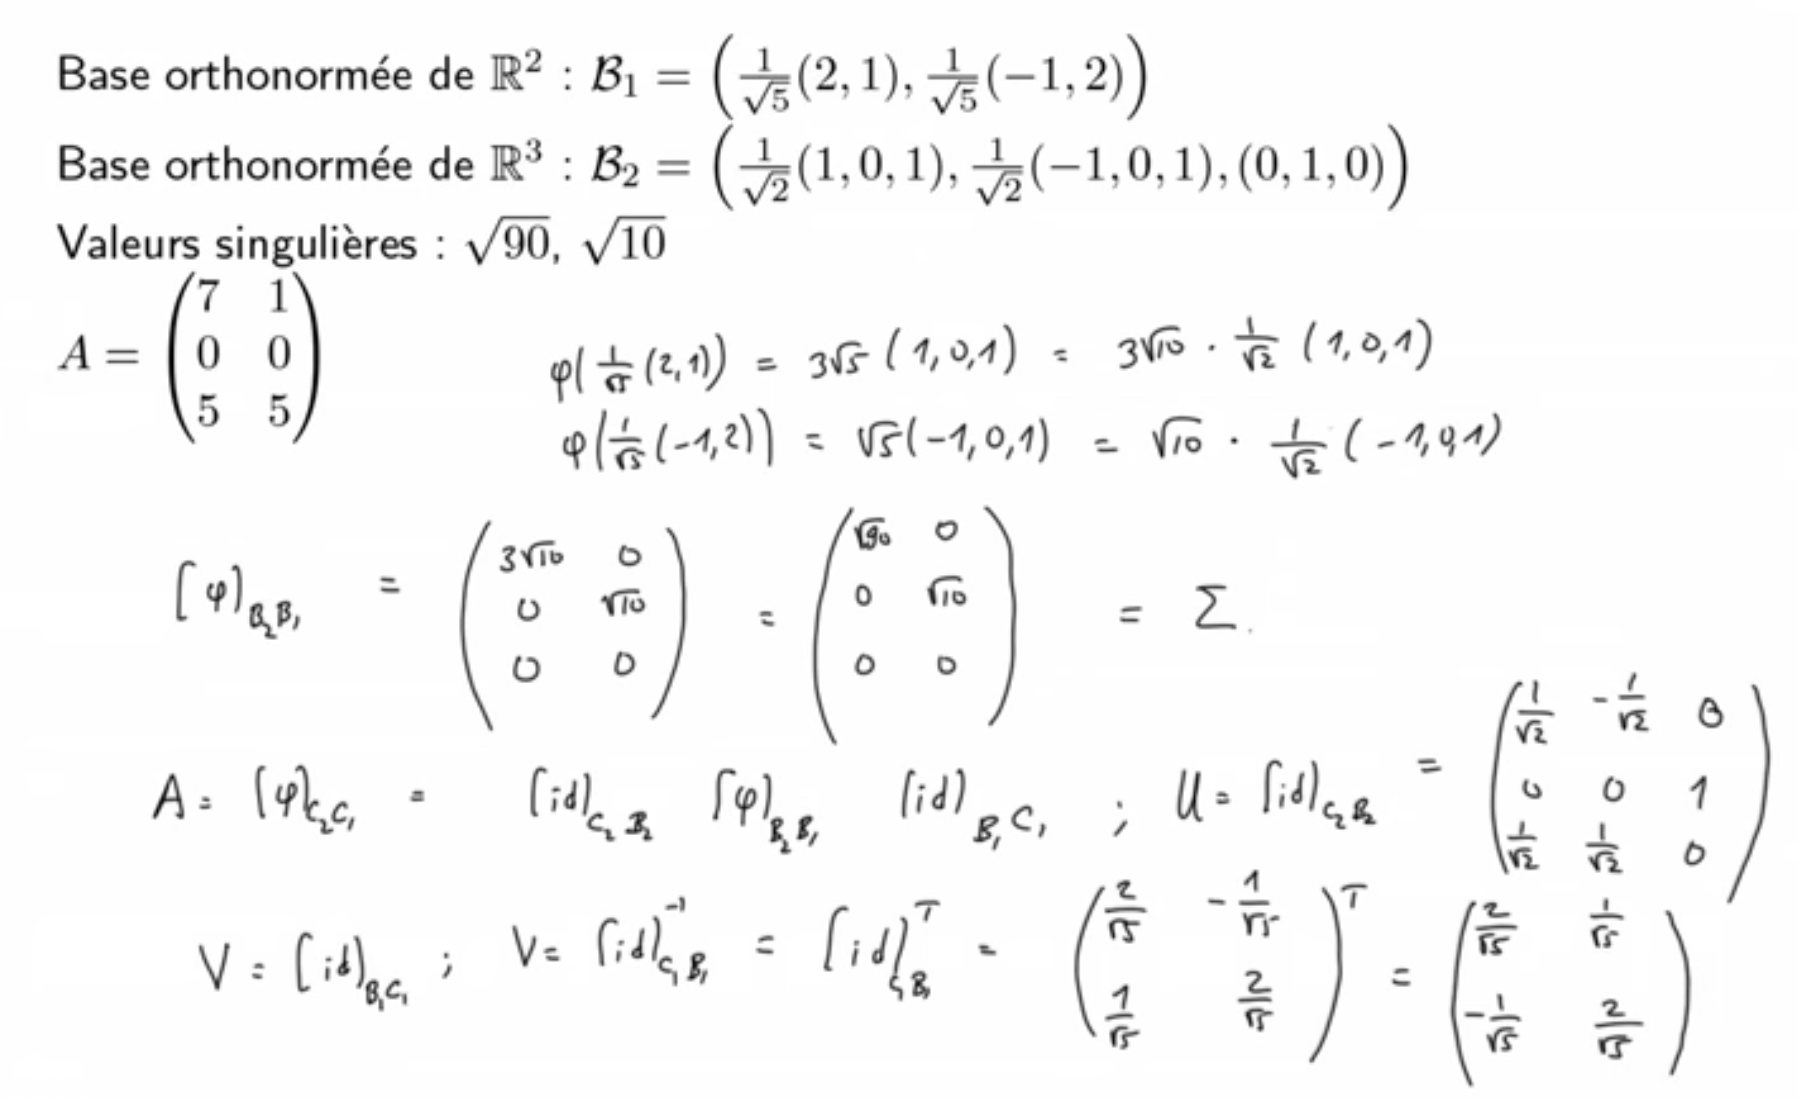 Base orthonormée de ℝ² : ℬ₁ = (1/√5 (2, 1), 1/√5 (−1, 2))
Base orthonormée de ℝ³ : ℬ₂ = (1/√2 (1, 0, 1), 1/√2 (−1, 0, 1), (0, 1, 0))
Valeurs singulières : √90, √10
A = (7 1; 0 0; 5 5)
φ(1/√5 (2,1)) = 3√5 (1,0,1) = 3√10 · 1/√2 (1,0,1)
φ(1/√5 (-1,2)) = √5(-1,0,1) = √10 · 1/√2 (-1,0,1)
[φ]_{B₂B₁} = (3√10 0; 0 √10; 0 0) = (√90 0; 0 √10; 0 0) = Σ.
A = [φ]_{C₂C₁} = [id]_{C₂B₂} [φ]_{B₂B₁} [id]_{B₁C₁} ; U = [id]_{C₂B₂} = (1/√2 -1/√2 0; 0 0 1; 1/√2 1/√2 0)
V = [id]_{B₁C₁} ; V = [id]⁻¹_{C₁B₁} = [id]ᵀ_{C₁B₁} = (2/√5 -1/√5; 1/√5 2/√5)ᵀ = (2/√5 1/√5; -1/√5 2/√5)